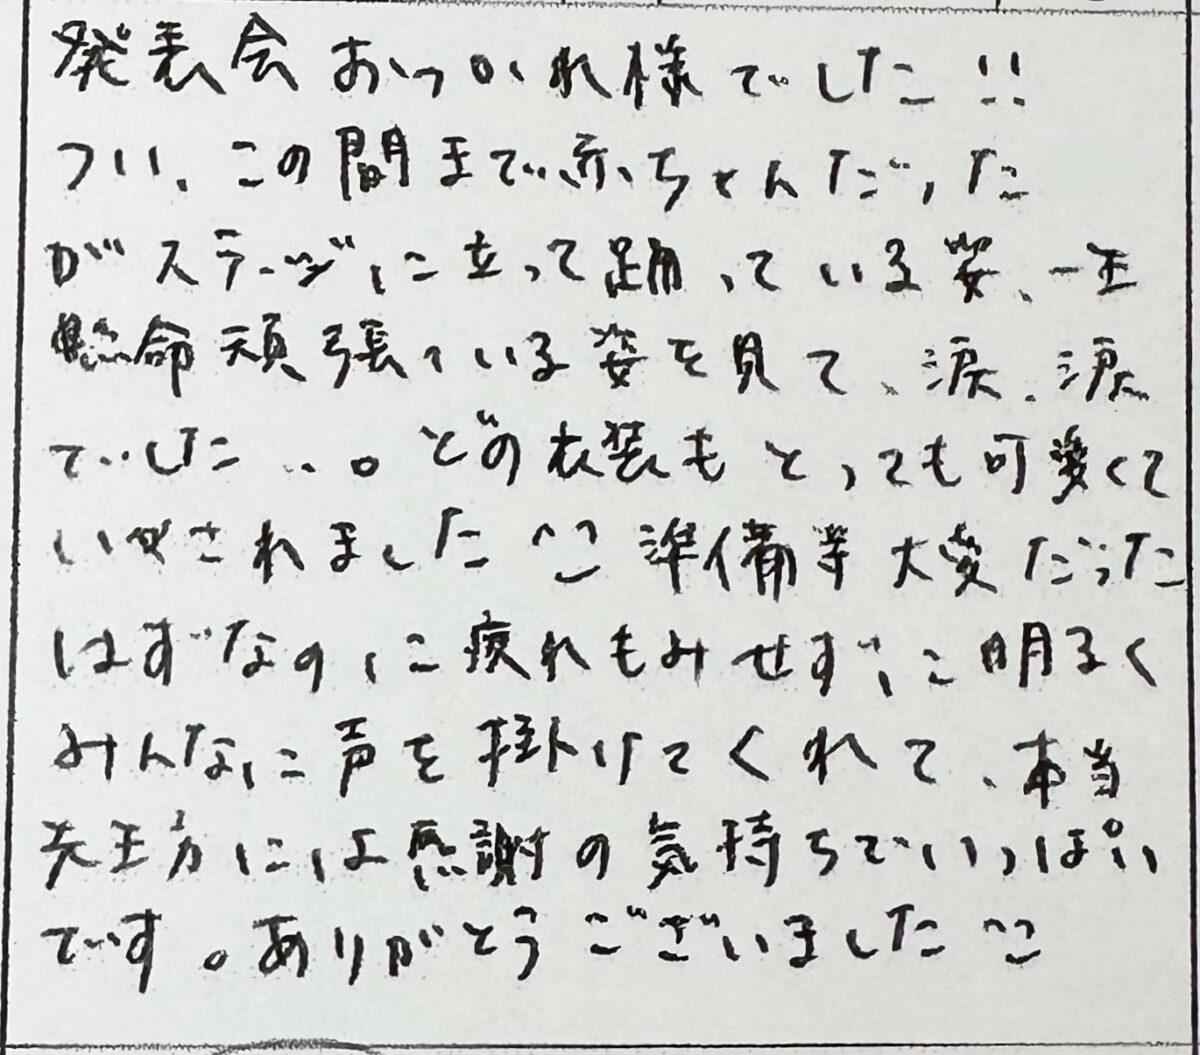 発表会おつかれ様でした!!
つい、この間まで赤ちゃんだった
がステージに立って踊っている姿、一生
懸命頑張っている姿を見て、涙、涙
でした...。どの衣装もとっても可愛くて
いやされました^^準備等大変だった
はずなのに疲れもみせずに明るく
みんなに声を掛けてくれて、本当
先生方には感謝の気持ちでいっぱい
です。ありがとうございました^^